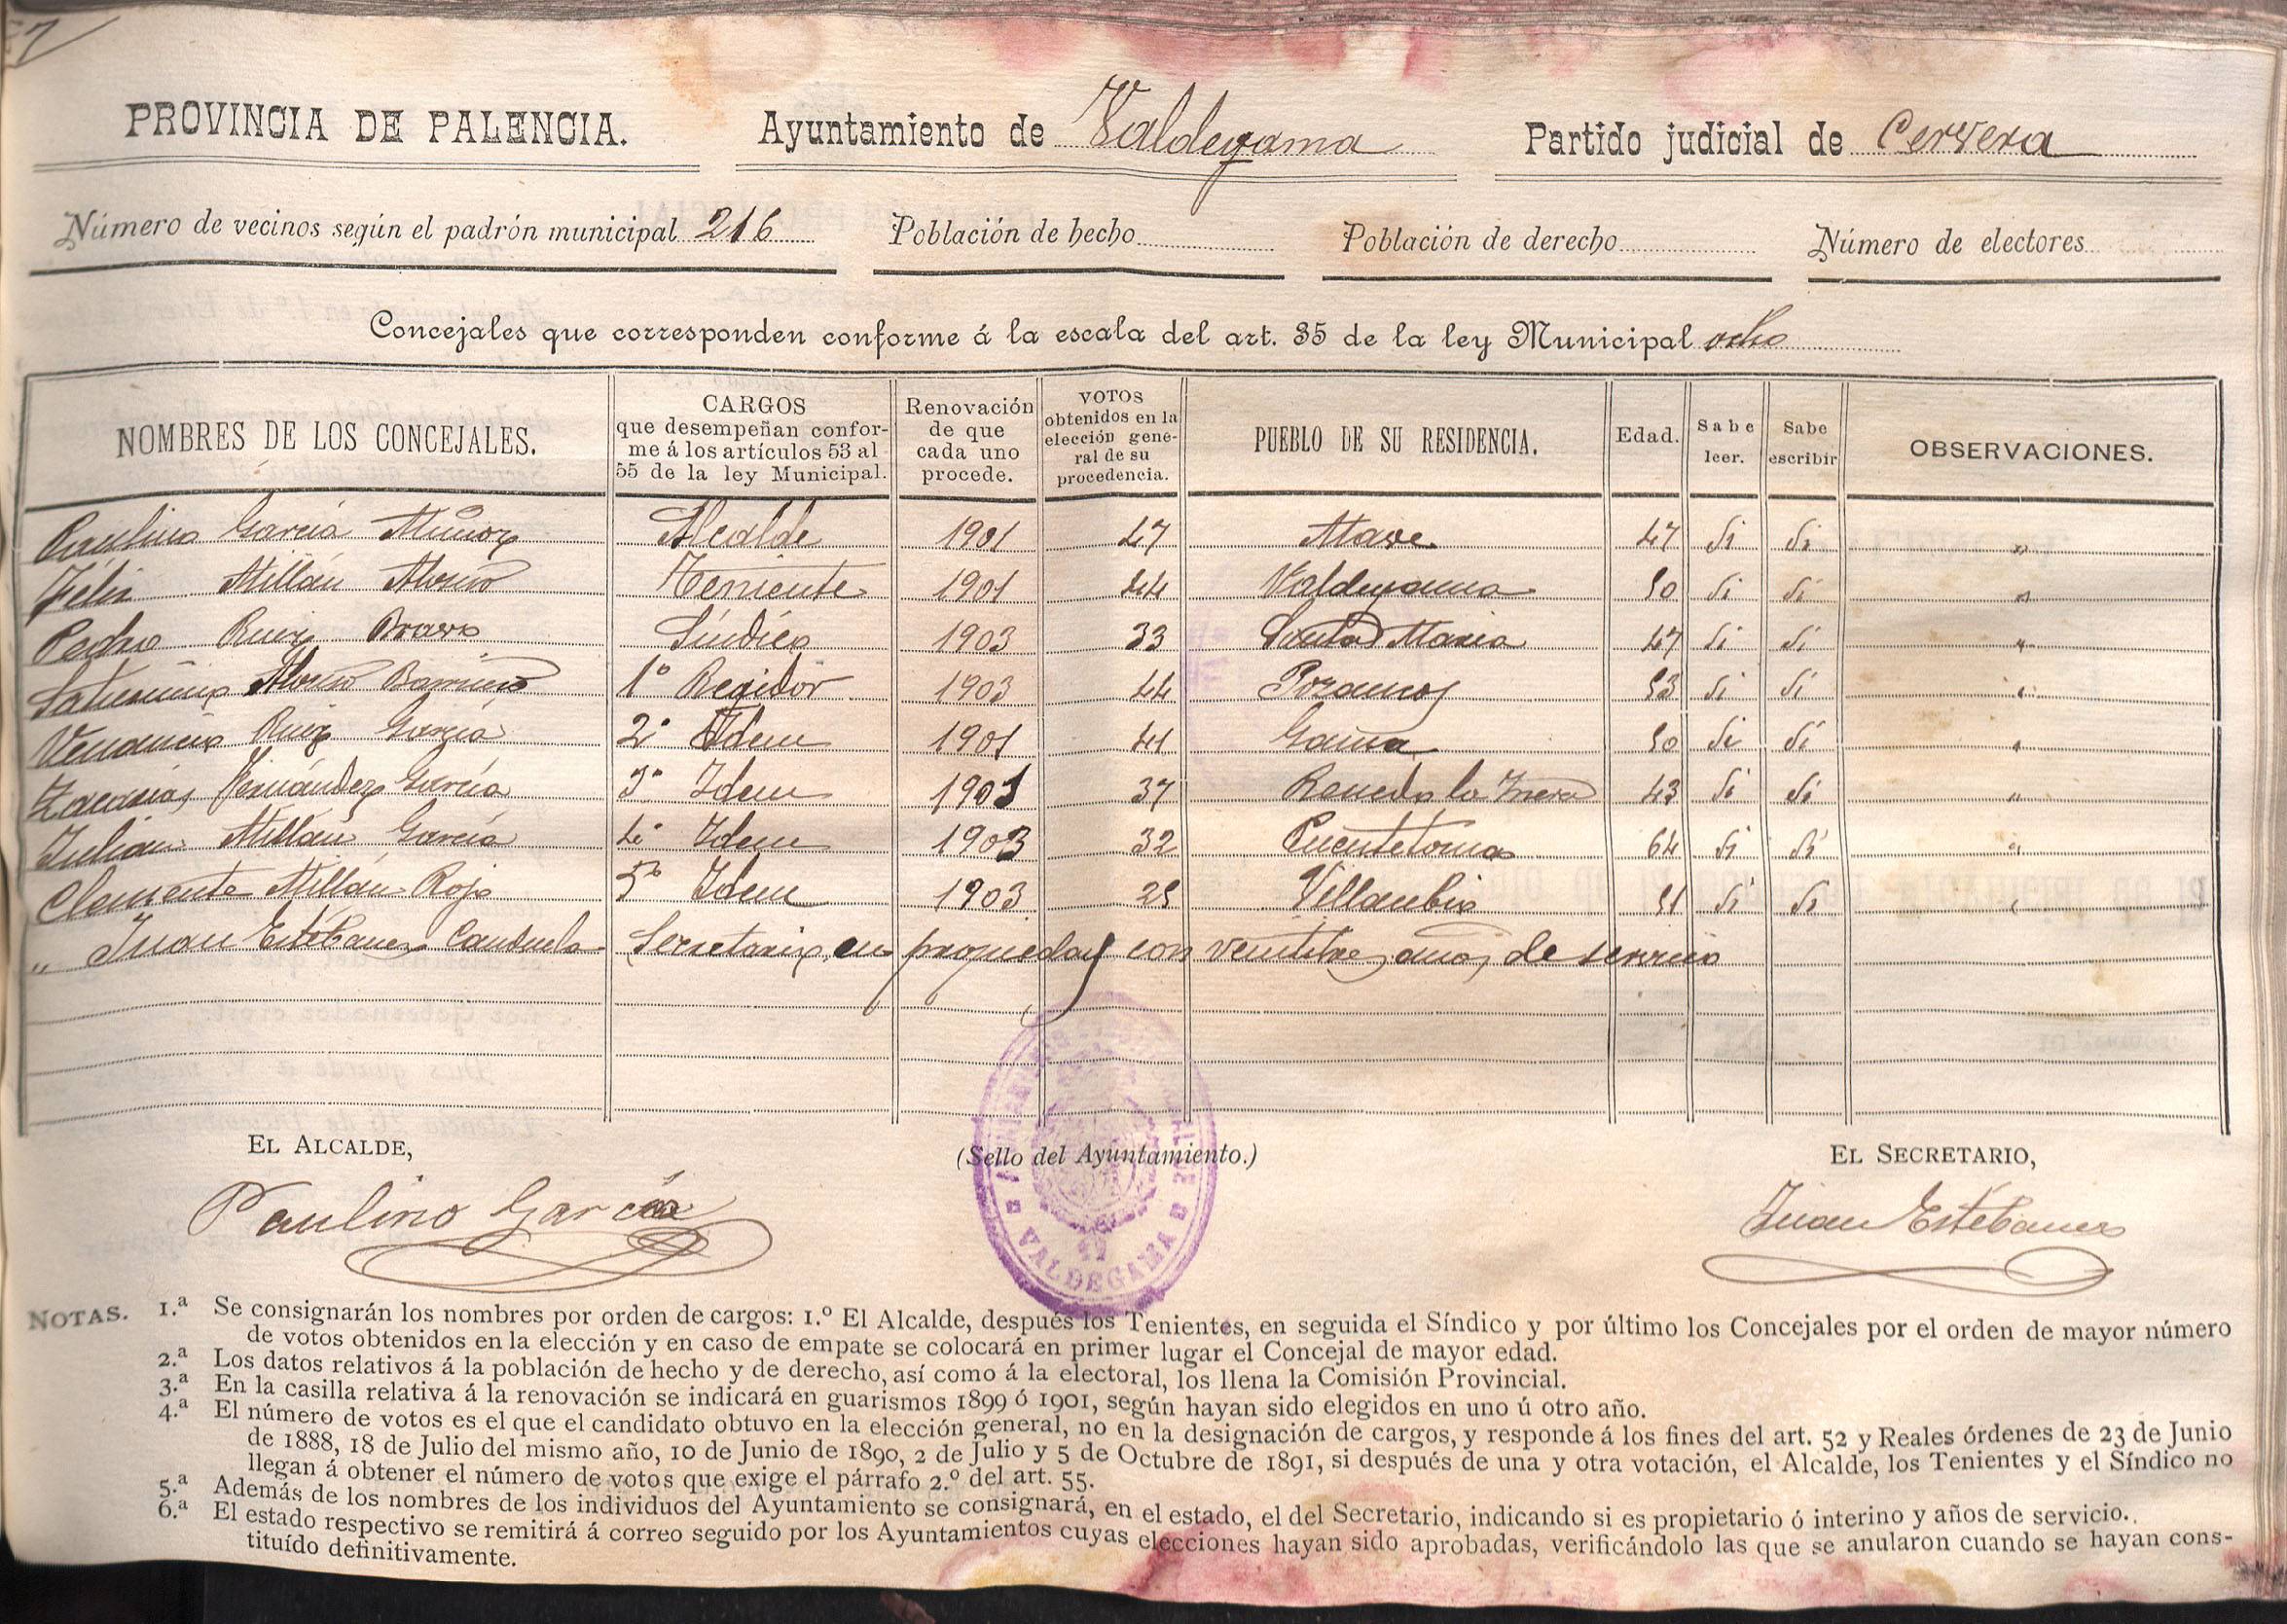 PROVINCIA DE PALENCIA. Ayuntamiento de Valdegama Partido judicial de Cervera
Número de vecinos según el padrón municipal 216 Población de hecho Población de derecho Número de electores
Concejales que corresponden conforme á la escala del art. 35 de la ley Municipal ocho
NOMBRES DE LOS CONCEJALES. CARGOS que desempeñan conforme á los artículos 53 al 55 de la ley Municipal. Renovación de que cada uno procede. VOTOS obtenidos en la elección general de su procedencia. PUEBLO DE SU RESIDENCIA. Edad. Sabe leer. Sabe escribir OBSERVACIONES.
Paulino García Muñoz Alcalde 1901 47 Mave 47 Si Si "
Félix Millán Alonso Teniente 1901 44 Valdegama 50 Si Si "
Pedro Ruiz Bravo Síndico 1903 33 Santa Maria 47 Si Si "
Saturnino Alonso Barriuso 1º Regidor 1903 44 Pozancos 53 Si Si "
Venancio Ruiz García 2º Idem 1901 41 Gama 50 Si Si "
Zacarías Hernández García 3º Idem 1901 37 Renedo la Inera 43 Si Si "
Julian Millán García 4º Idem 1903 32 Puentetoma 64 Si Si "
Clemente Millán Rojo 5º Idem 1903 25 Villanubio 51 Si Si "
" Juan Estébanez Canduela Secretario en propiedad con veintitres años de servicio
EL ALCALDE, (Sello del Ayuntamiento.) EL SECRETARIO,
Paulino García Juan Estébanez
VALDEGAMA
NOTAS. 1.ª Se consignarán los nombres por orden de cargos: 1.º El Alcalde, después los Tenientes, en seguida el Síndico y por último los Concejales por el orden de mayor número
de votos obtenidos en la elección y en caso de empate se colocará en primer lugar el Concejal de mayor edad.
2.ª Los datos relativos á la población de hecho y de derecho, así como á la electoral, los llena la Comisión Provincial.
3.ª En la casilla relativa á la renovación se indicará en guarismos 1899 ó 1901, según hayan sido elegidos en uno ú otro año.
4.ª El número de votos es el que el candidato obtuvo en la elección general, no en la designación de cargos, y responde á los fines del art. 52 y Reales órdenes de 23 de Junio
de 1888, 18 de Julio del mismo año, 10 de Junio de 1890, 2 de Julio y 5 de Octubre de 1891, si después de una y otra votación, el Alcalde, los Tenientes y el Síndico no
llegan á obtener el número de votos que exige el párrafo 2.º del art. 55.
5.ª Además de los nombres de los individuos del Ayuntamiento se consignará, en el estado, el del Secretario, indicando si es propietario ó interino y años de servicio.
6.ª El estado respectivo se remitirá á correo seguido por los Ayuntamientos cuyas elecciones hayan sido aprobadas, verificándolo las que se anularon cuando se hayan cons-
tituído definitivamente.